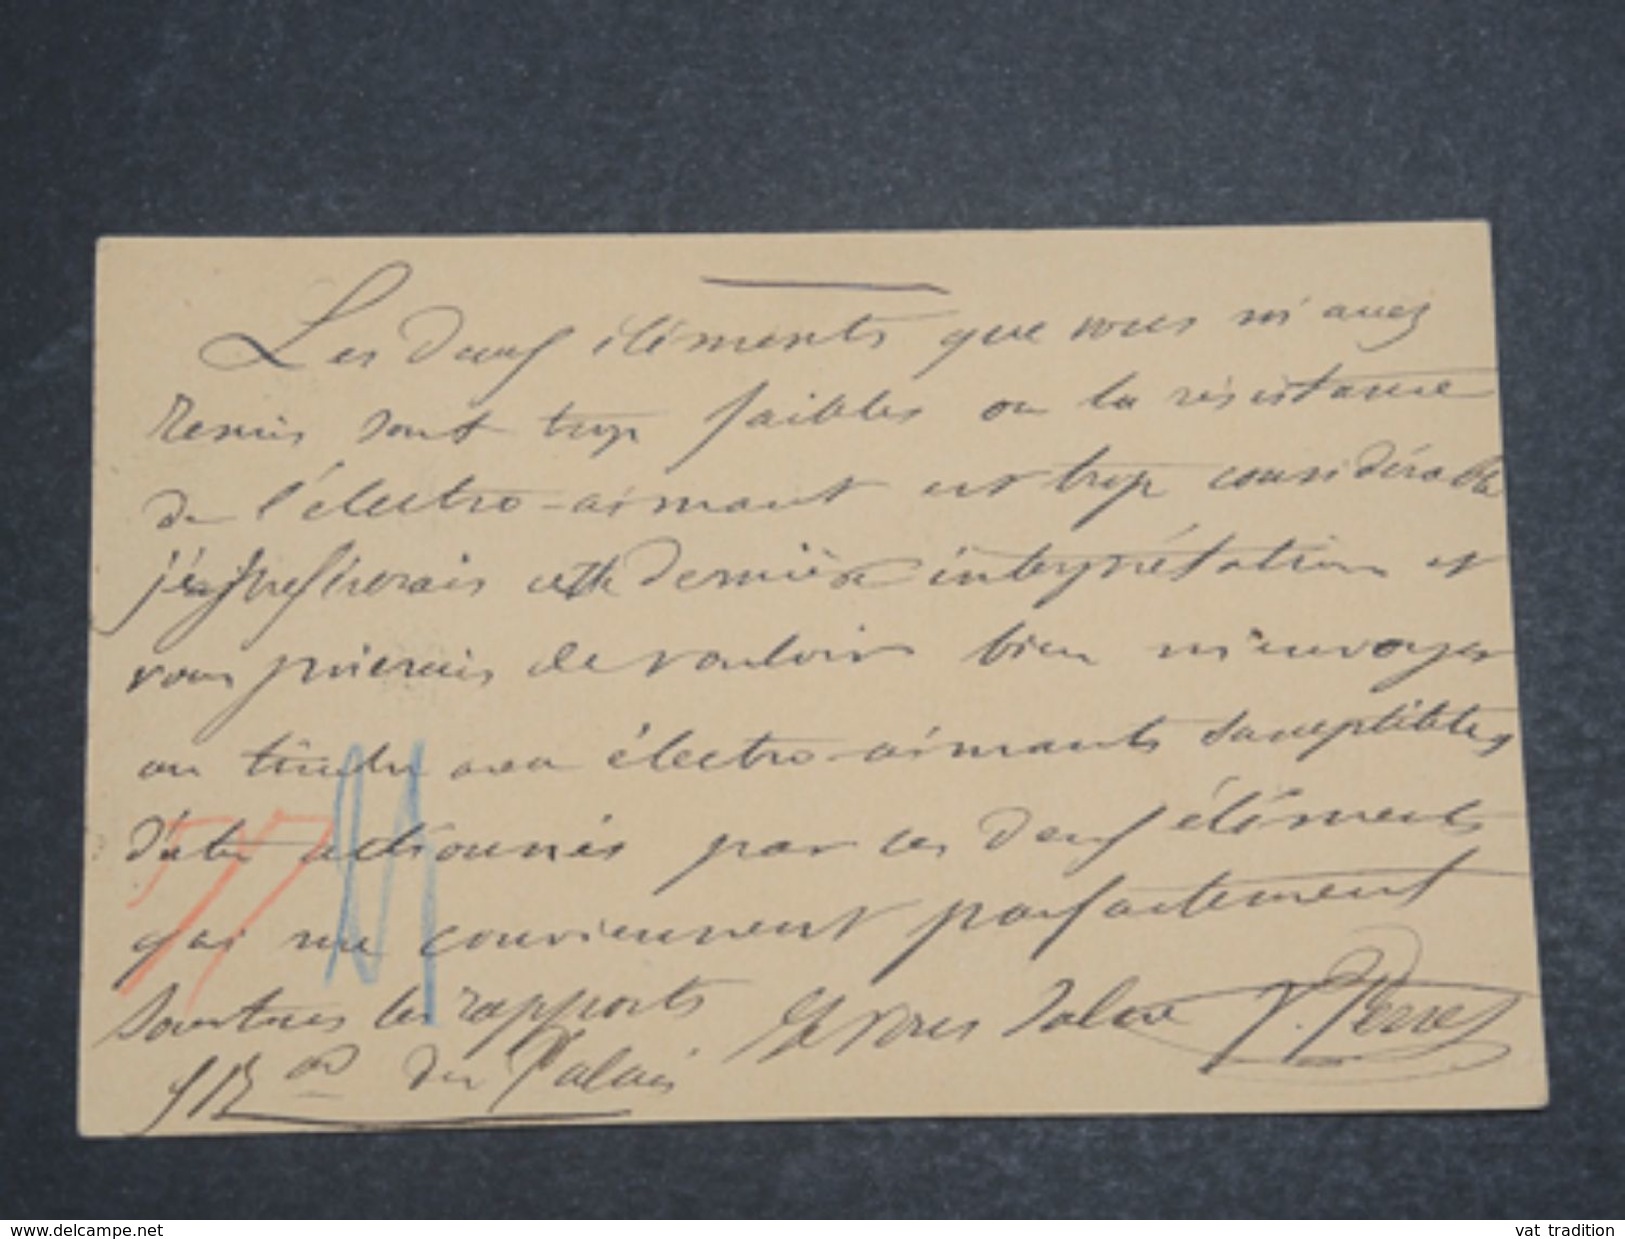 Les deux éléments que vous m'avez
remis sont trop faibles ou la résistance
de l'électro-aimant est trop considérable
préférerais cette dernière interprétation et
vous prierais de vouloir bien m'envoyer
un électro-aimants susceptibles
d'être actionnés par ces deux éléments
qui me conviennent parfaitement
sous tous les rapports Je vous salue J. Perre
5 Bd du Palais
77
vat tradition
www.delcampe.net